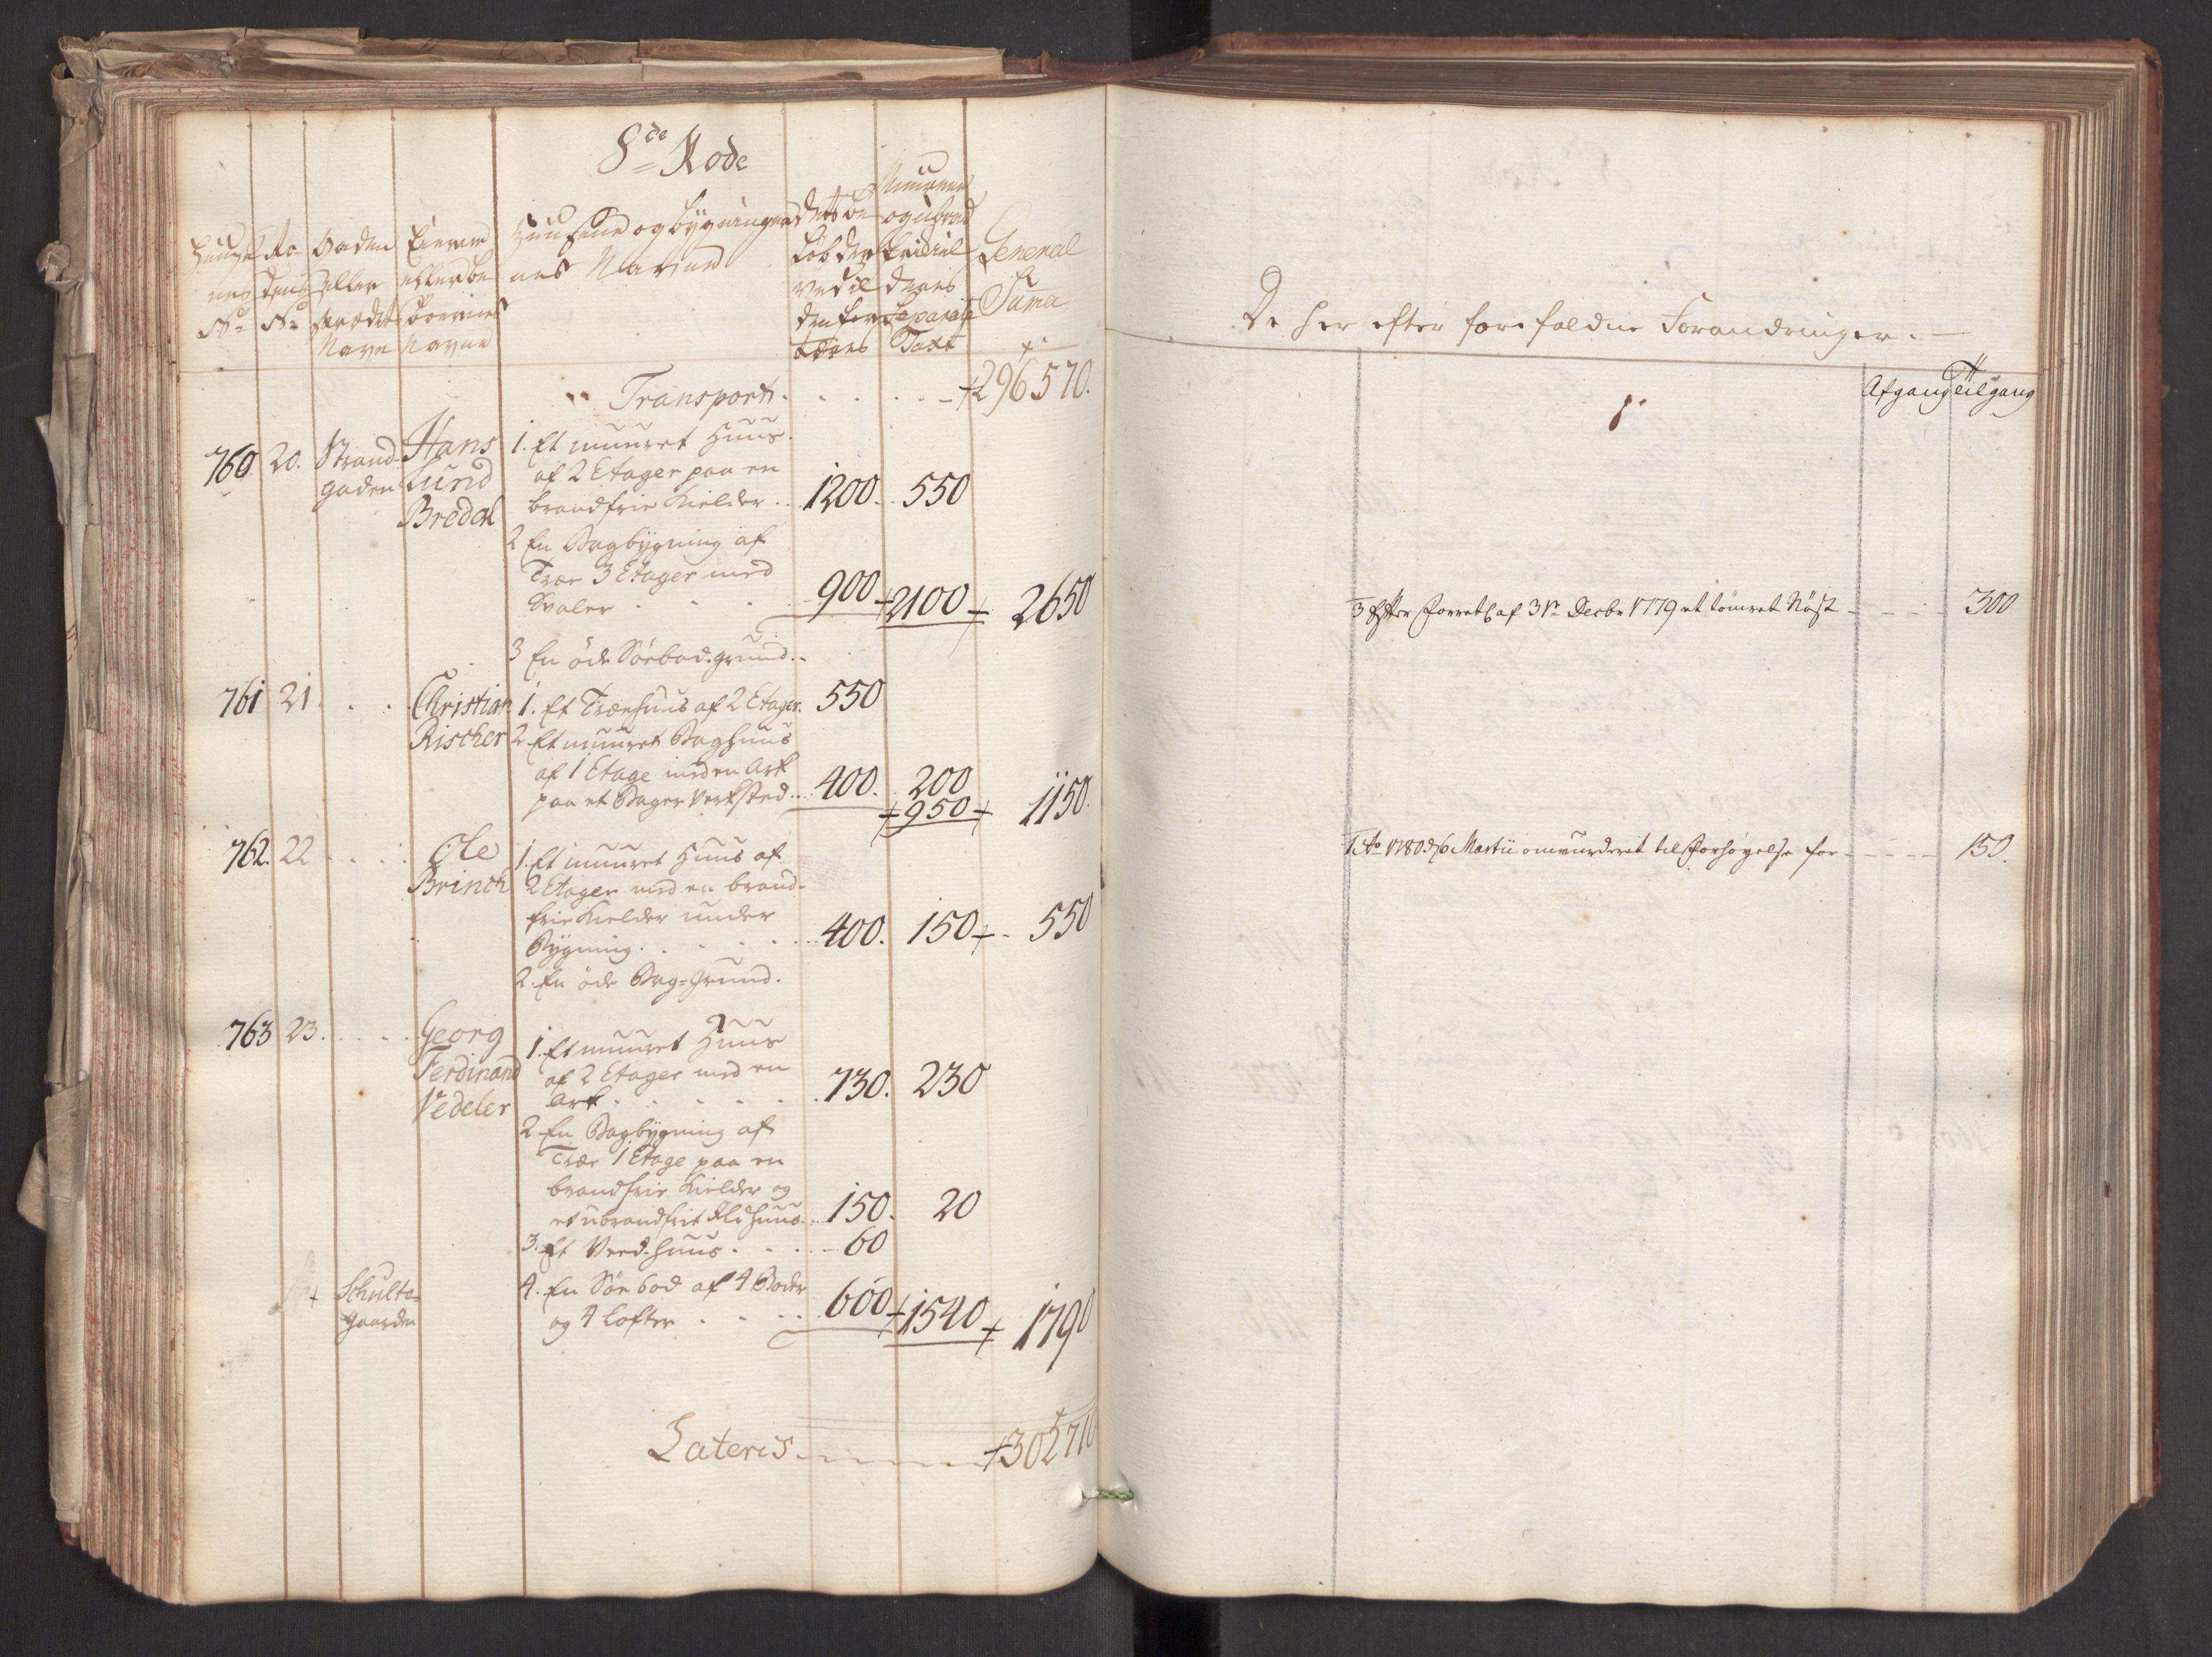 8de Rode
Huusenes No
Rodens No
Gaden eller Strædets Navn
Eierens eller Beboerens Navne
Huusene og bygningernes Navne
dets beløb der ved il den fortæres
Muurene og ubrand
deres Separate Taxt
General Suma
Transport . . . . 296570.
760 20. Strand-gaden Hans Lund Bredal
1. Et muuret Huus
af 2 Etager paa en
brandfrie Kielder . . 1200. 550
2 En Bagbÿgning af
Træ 3 Etager med
Svaler . . . 900 2100 2650
3 En öde Söebod-grund.
761 21 . . . Christian Rischer
1. Et Træehuus af 2 Etager. 550
2 Et muuret Baghuus
af 1 Etage med en Ark
paa et Bager Verksted . . 400. 200
950 1150.
762. 22 . . . Ole Brinch
1. Et muuret Huus af
2 Etager med en brand-
frie Kielder under
Bÿgning . . . . 400. 150 550
2. En öde Bag-grund.
763 23. . . . Georg Ferdinand Vedeler
1. Et muuret Huus
af 2 Etager med en
Ark . . . . . 730. 230
2 En Bagbÿgning af
Træe 1 Etage paa en
brandfrie Kielder og
et ubrandfrit Ildhuus . . 150. 20
3. Et Veed-huus . . . 60
Schulte-gaarden
4. En Söe bod af 4 Boder
og 4 Lofter . . . . 600 1540 1790
Lateris . . . . 302710
De her efter forefaldne Forandringer.
Afgang Tilgang
3 Efter Forretn af 31 Decbr 1779 et tömret Nöst . . . 300
1. Ao 1780 d 6 Martii omvurderet til Forhöyelse for . . . 150.